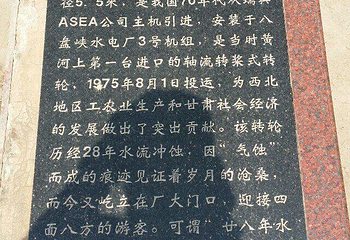 径5.5米，是我国70年代从瑞典
ASEA公司主机引进，安装于八
盘峡水电厂3号机组，是当时黄
河上第一台进口的轴流转桨式转
轮，1975年8月1日投运，为西北
地区工农业生产和甘肃社会经济
的发展做出了突出贡献。该转轮
历经28年水流冲蚀，因“气蚀”
而成的痕迹见证着岁月的沧桑，
而今又屹立在厂大门口，迎接四
面八方的游客。可谓“廿八年水